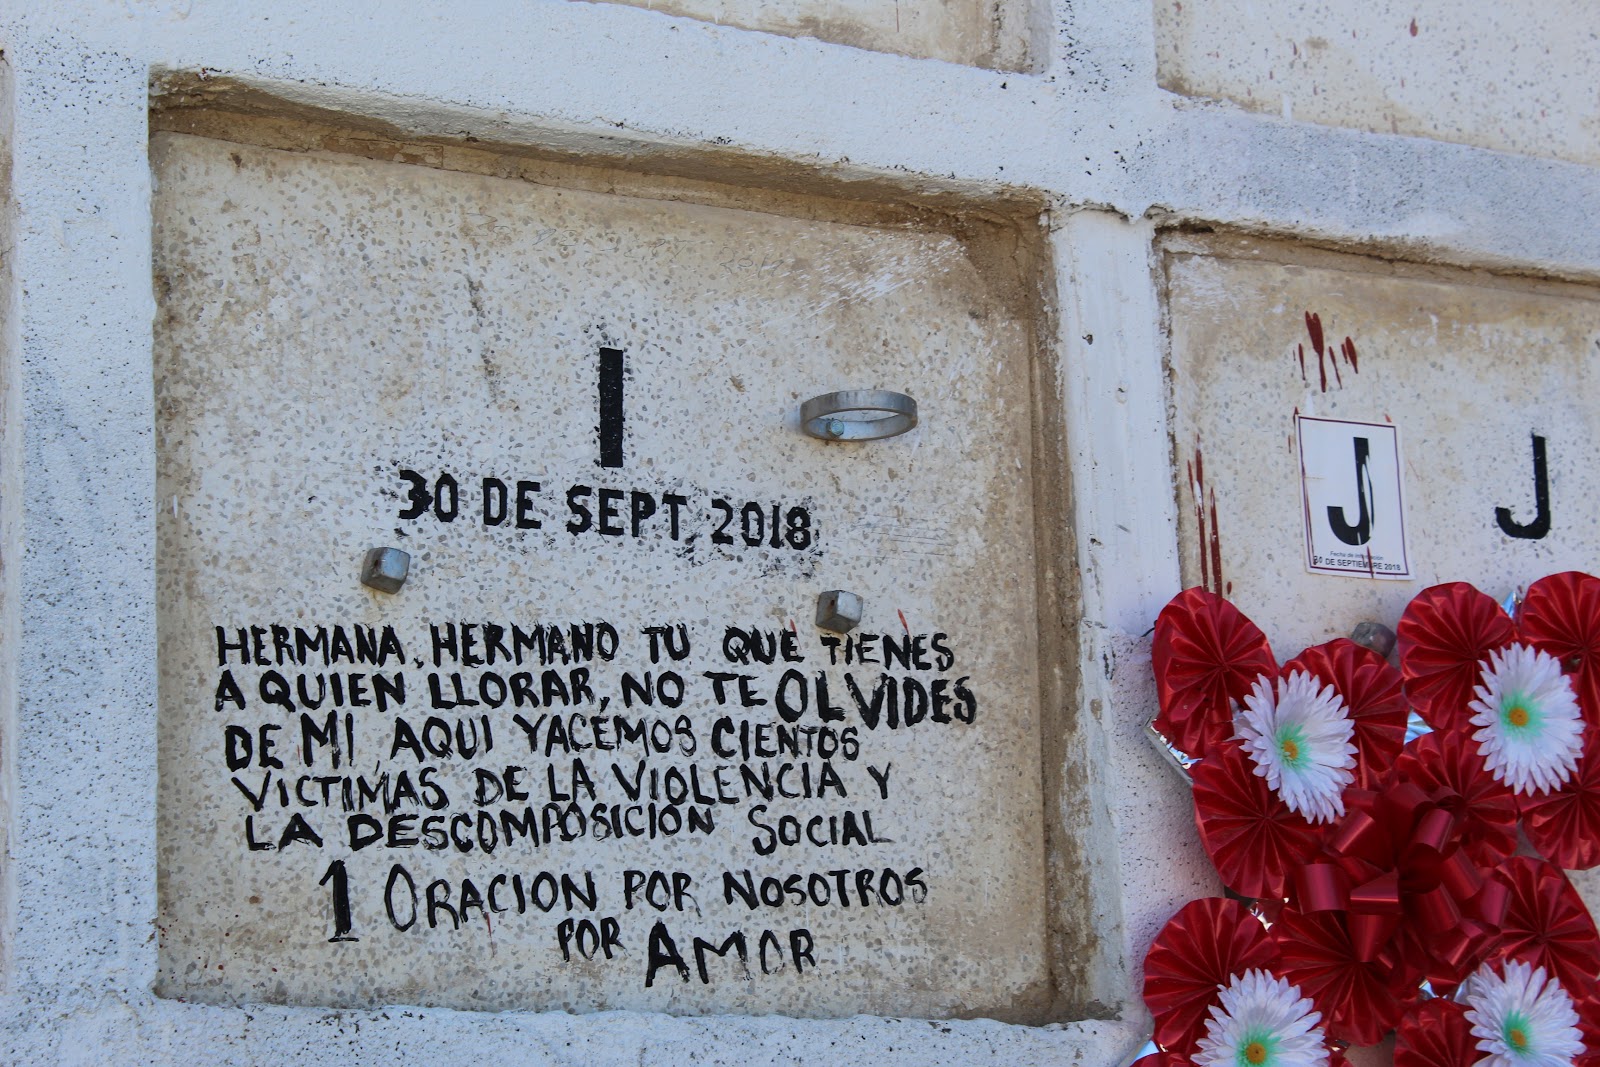 I
30 DE SEPT. 2018
HERMANA, HERMANO TU QUE TIENES
A QUIEN LLORAR, NO TE OLVIDES
DE MI, AQUI YACEMOS CIENTOS
VICTIMAS DE LA VIOLENCIA Y
LA DESCOMPOSICION SOCIAL
1 ORACION POR NOSOTROS
POR AMOR
J
30 DE SEPTIEMBRE 2018
J